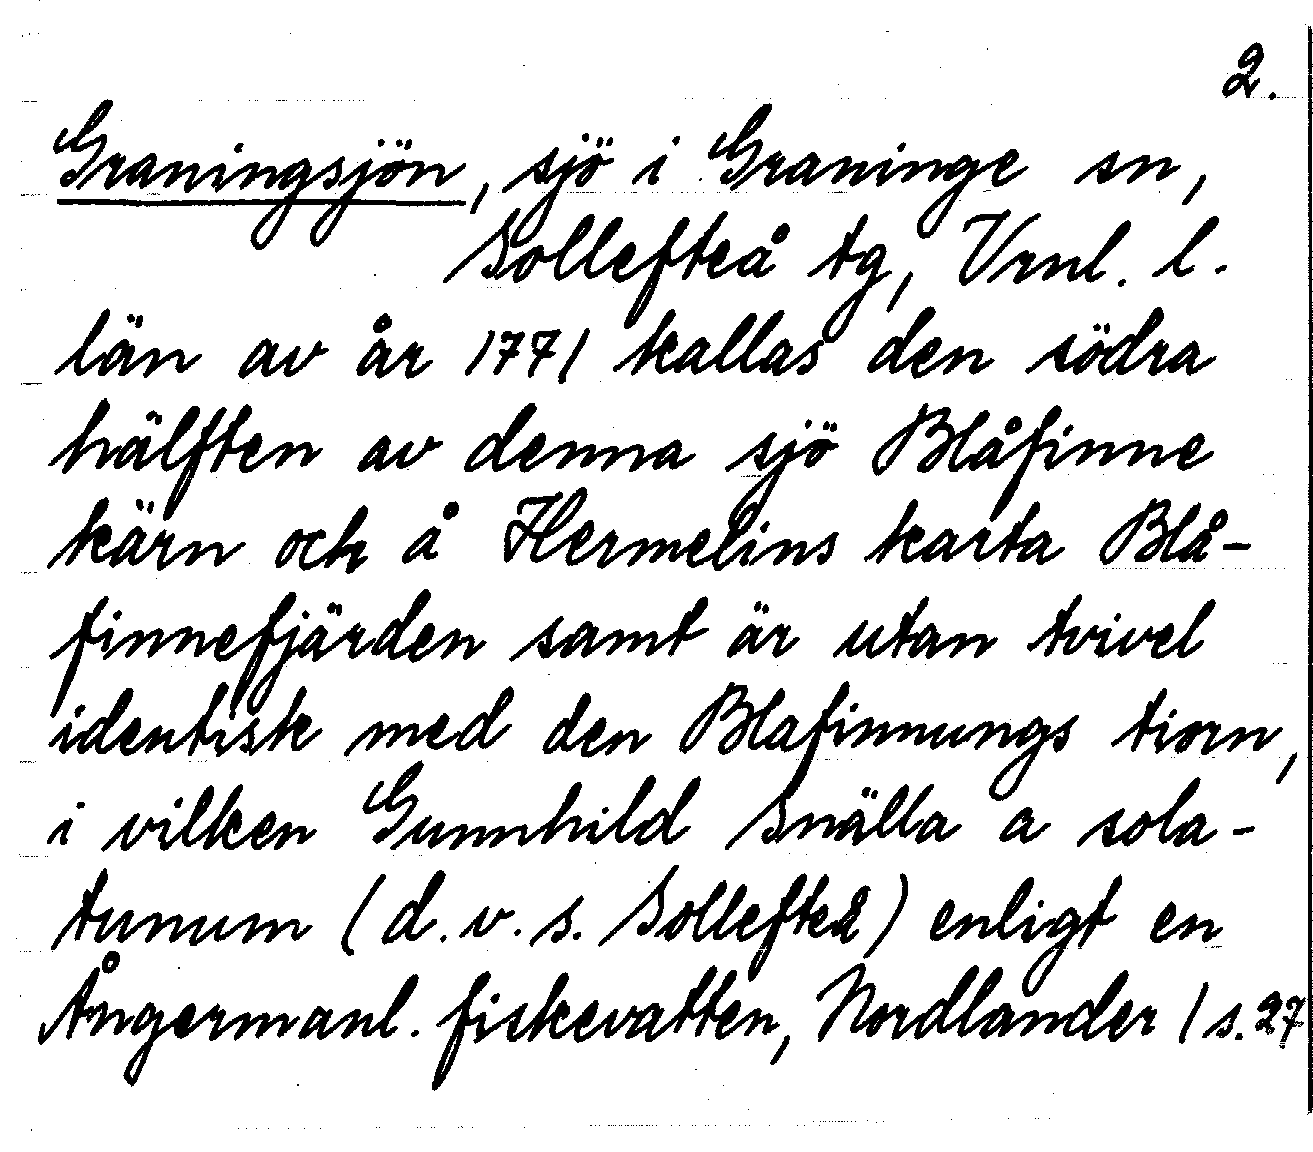 2.
Graningsjön, sjö i Graninge sn,
Sollefteå tg, Vrnl. l.
län av år 1771 kallas den södra
hälften av denna sjö Blåfinne
kärn och å Hermelins karta Blå-
finnefjärden samt är utan tvivel
identisk med den Blafinnungs tiorn,
i vilken Gunnhild Snälla a sola-
tunum (d.v.s. Sollefteå) enligt en
Ångermanl. fiskevatten, Nordlander 1 s. 27